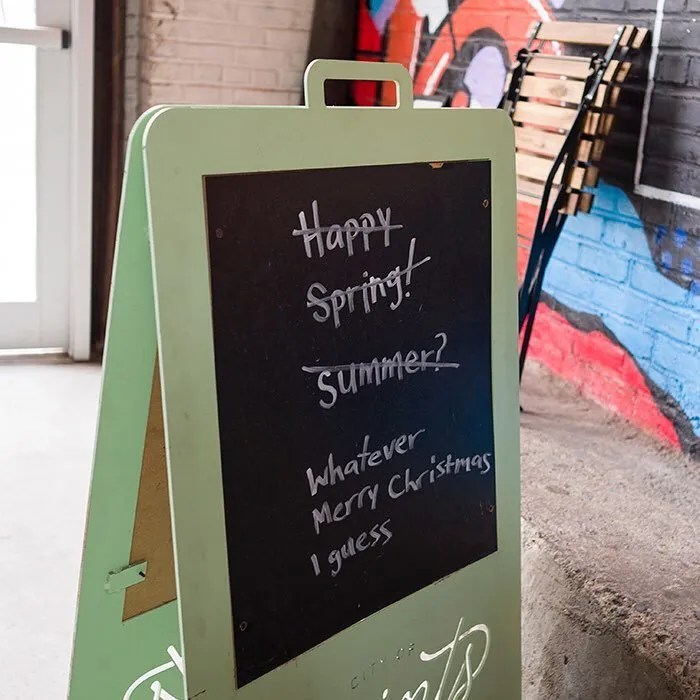 Happy
Spring!
Summer?
Whatever
Merry Christmas
I guess
CITY OF